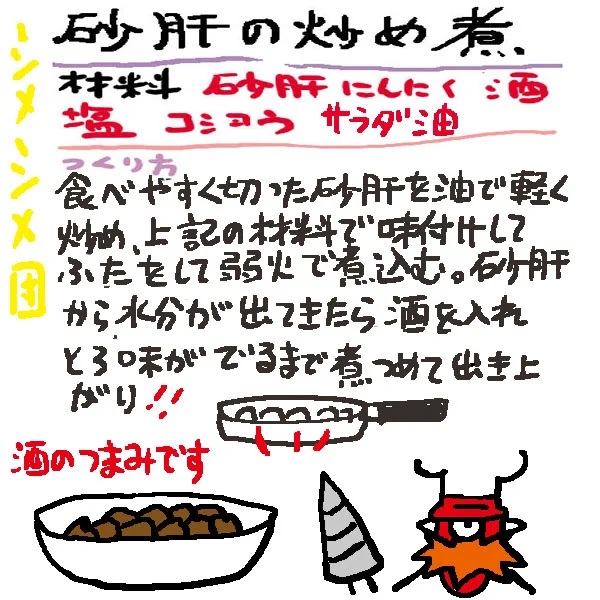 砂肝の炒め煮
材料 砂肝 にんにく 酒
塩 コショウ サラダ油
つくり方
食べやすく切った砂肝を油で軽く
炒め、上記の材料で味付けして
ふたをして弱火で煮込む。砂肝
から水分が出てきたら酒を入れ
とろ味がでるまで煮つめて出き上
がり!!
酒のつまみです